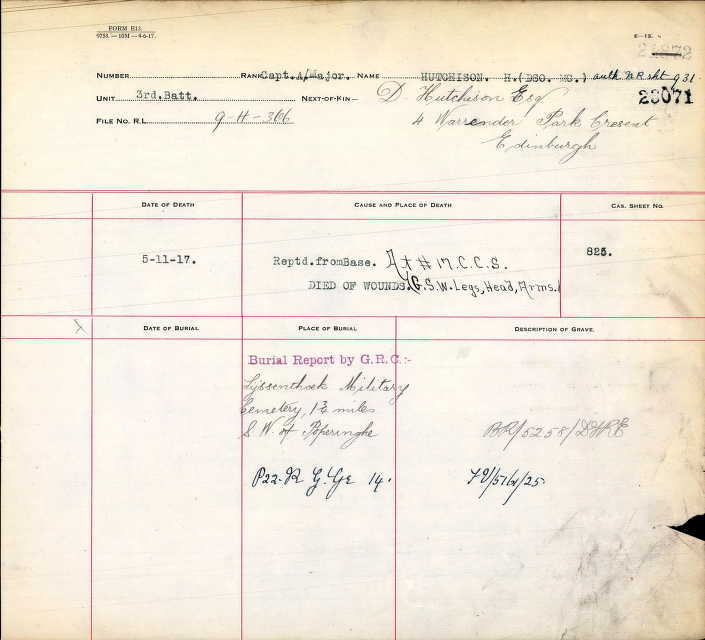 FORM R15.
9753.—10M—4-6-17.
NUMBER RANK Capt.A/Major. NAME HUTCHISON. H.(DSO. MC.) auth NR sht 931.
23071
UNIT 3rd.Batt. NEXT-OF-KIN— D. Hutchison Esq
FILE No. R.L. 9-H-366 4 Warrender Park Cresent
Edinburgh
DATE OF DEATH CAUSE AND PLACE OF DEATH CAS. SHEET No.
5-11-17. Reptd.fromBase. At # 17.C.C.S. 825.
DIED OF WOUNDS.(G.S.W. Legs, Head, Arms.)
X DATE OF BURIAL PLACE OF BURIAL DESCRIPTION OF GRAVE.
Burial Report by G.R.C.:-
Lijssenthoek Military
Cemetery, 1¾ miles
S.W. of Poperinghe
P22.R 14.